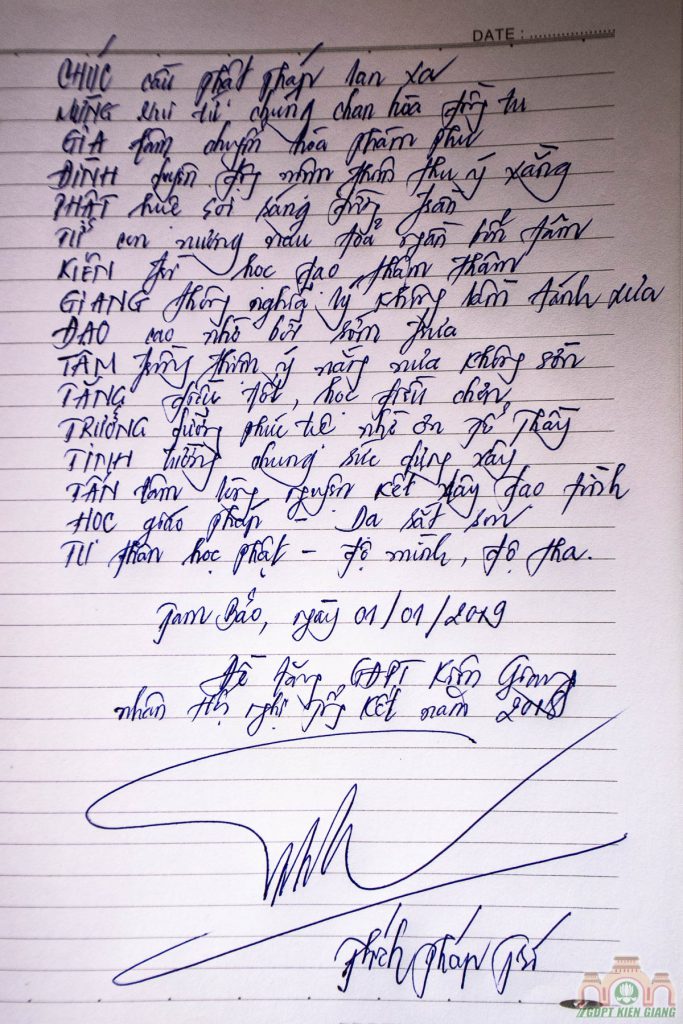 DATE :
CHÚC cầu phật pháp lan xa
MỪNG chư tứ chúng chan hòa đồng tu
GIA tâm chuyển hóa phàm phu
ĐÌNH duyên
PHẬT huệ soi sáng
TỬ con nương náu tỏa ngàn bốn tâm
KIÊN trì học đạo thậm thâm
GIANG thông nghĩa lý không lầm tánh xưa
ĐẠO cao nhờ bởi sớm trưa
TÂM nắng mưa không sờn
TĂNG điều tốt, học điều chơn
TRƯỞNG dưỡng phúc tuệ nhờ ơn Tổ Thầy
TINH tường chung sức dựng xây
TẤN tâm lòng nguyện kết xây đạo tình
HỌC giáo pháp - Dạ sắt son
TU thân học phật - độ mình, độ tha.
Tam Bảo, ngày 01/01/2019
Đề tặng GĐPT Kiên Giang
nhân Hội nghị Tổng kết năm 2018
Thích Pháp Trí
GĐPT KIEN GIANG